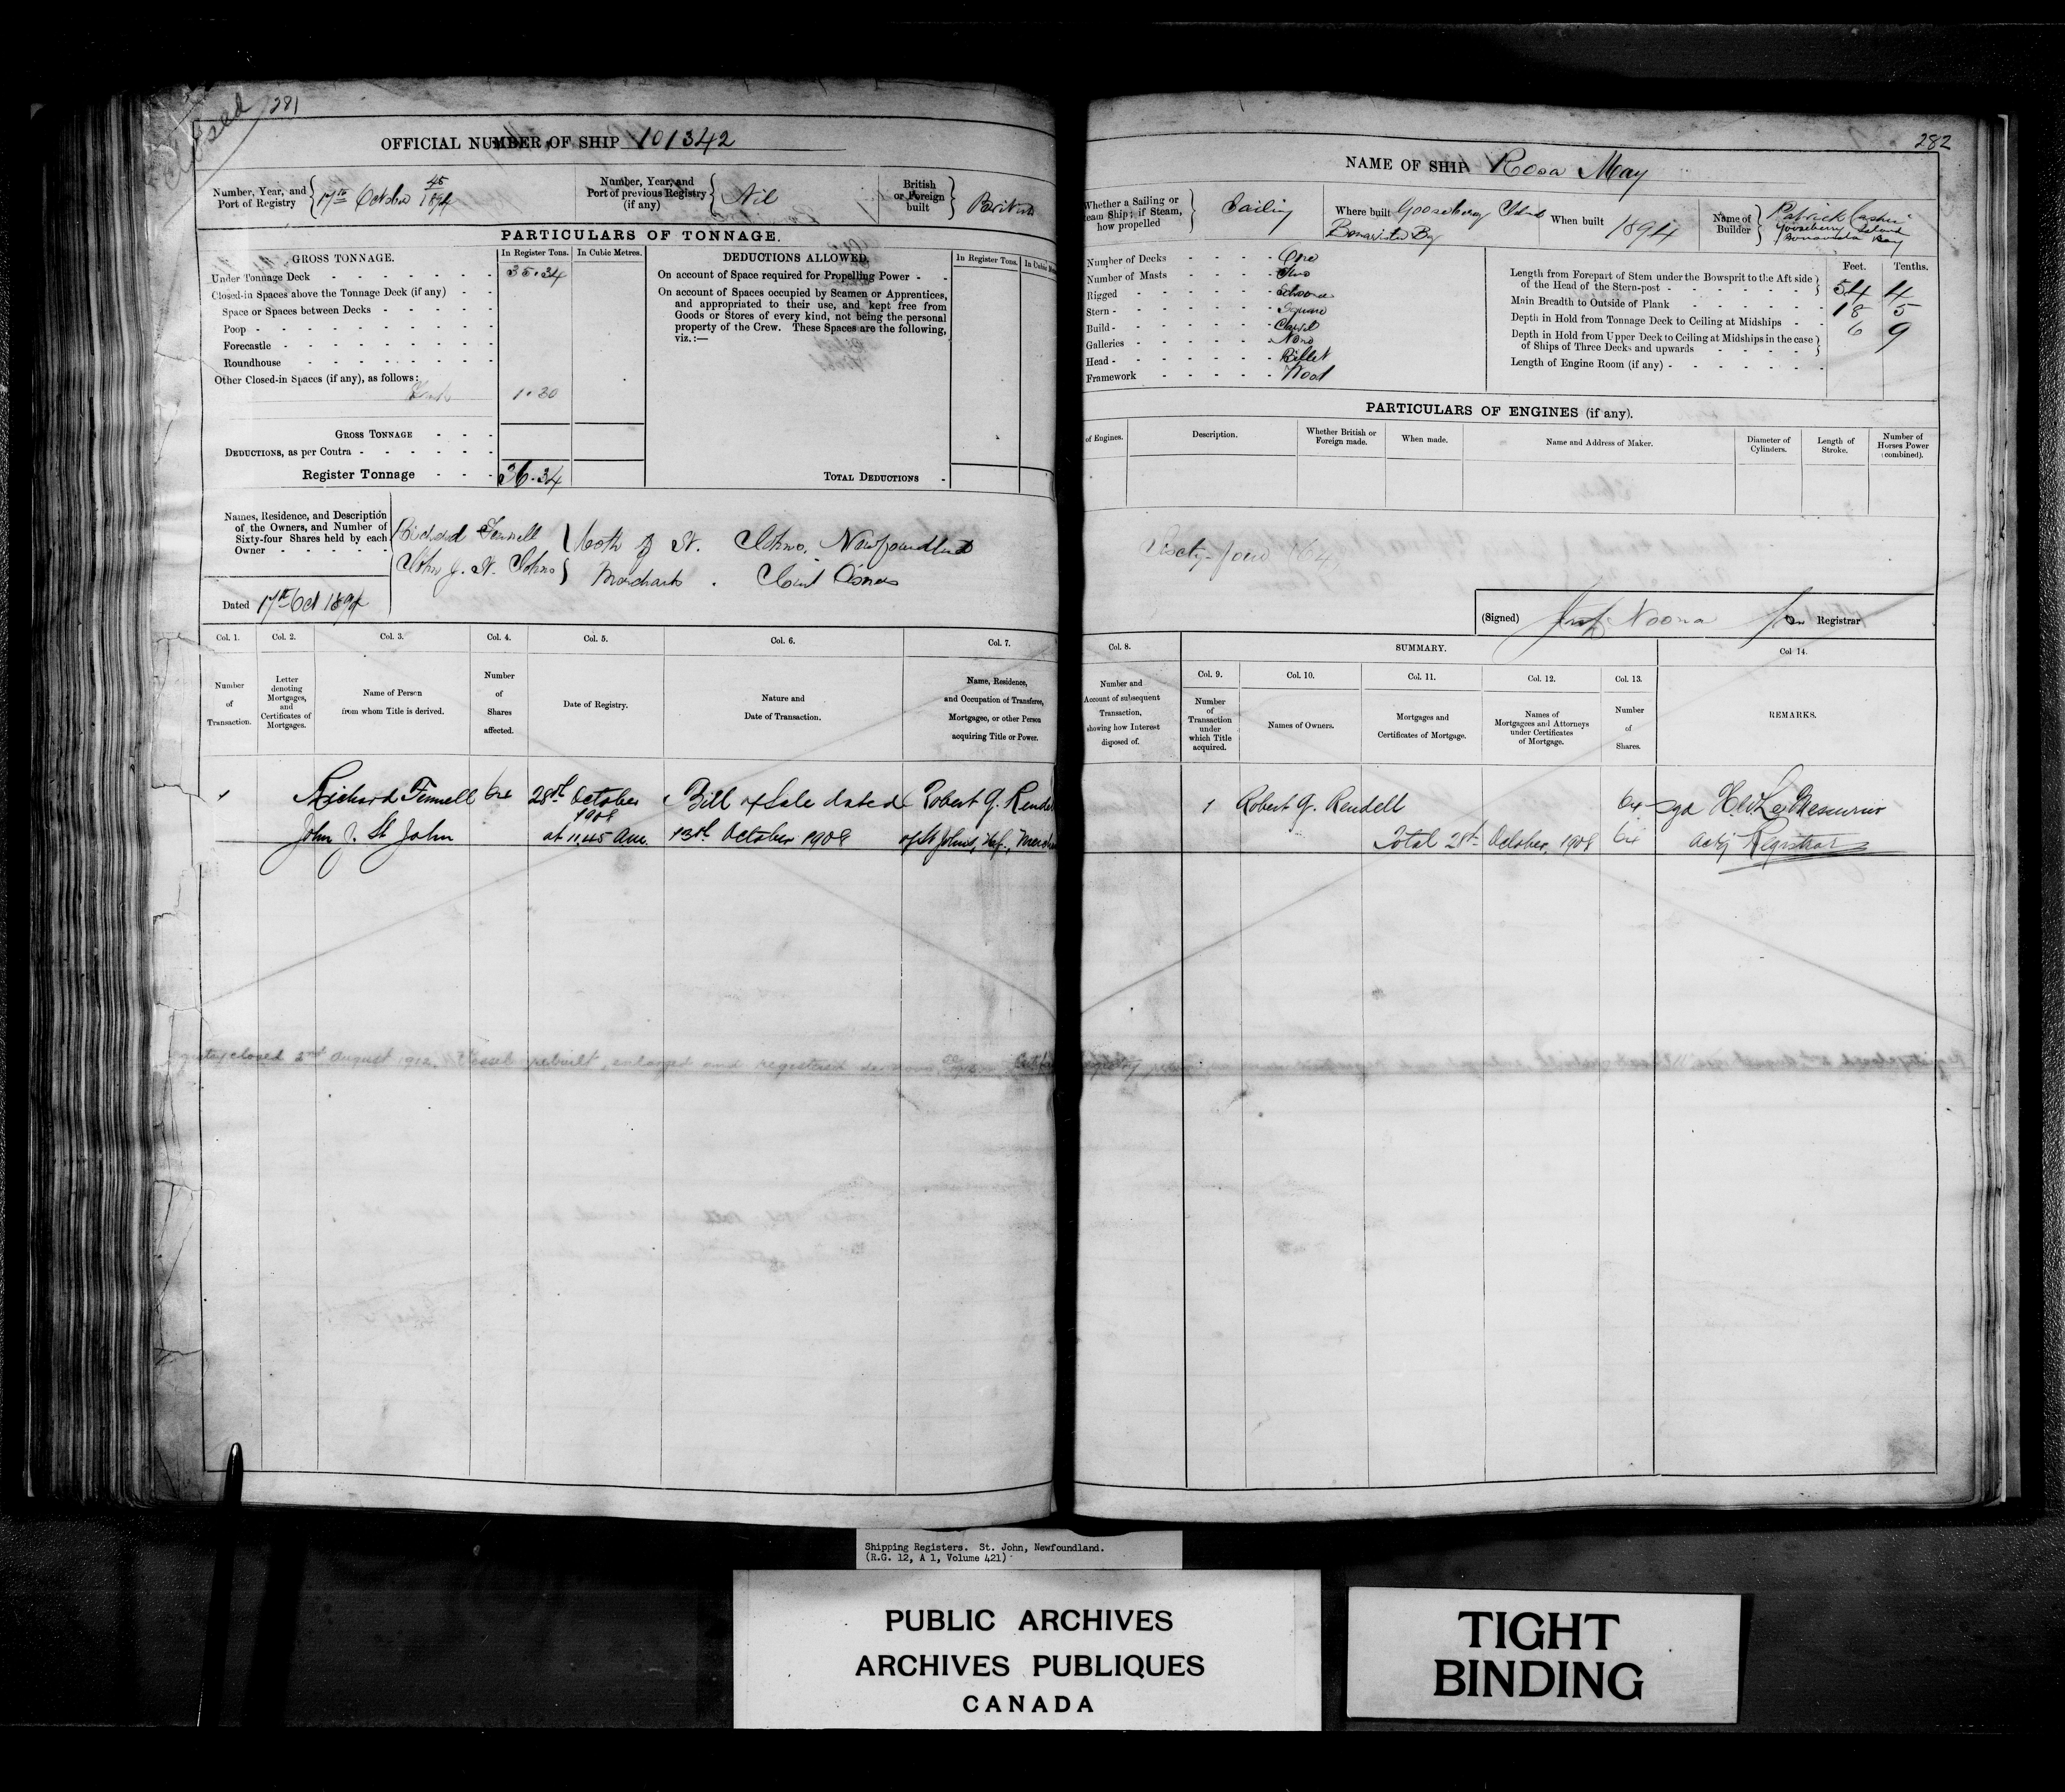 281
OFFICIAL NUMBER OF SHIP 101342
Number, Year, and Port of Registry
17th October 45/1894
Number, Year, and Port of previous Registry (if any)
Nil
British or Foreign built
British
PARTICULARS OF TONNAGE.
GROSS TONNAGE.
In Register Tons.
In Cubic Metres.
DEDUCTIONS ALLOWED.
In Register Tons.
In Cubic
Under Tonnage Deck
35.34
Closed-in Spaces above the Tonnage Deck (if any)
Space or Spaces between Decks
Poop
Forecastle
Roundhouse
Other Closed-in Spaces (if any), as follows:
1.30
On account of Space required for Propelling Power
On account of Spaces occupied by Seamen or Apprentices,
and appropriated to their use, and kept free from
Goods or Stores of every kind, not being the personal
property of the Crew. These Spaces are the following,
viz.:—
GROSS TONNAGE
DEDUCTIONS, as per Contra
Register Tonnage
36.34
TOTAL DEDUCTIONS
Names, Residence, and Description
of the Owners, and Number of
Sixty-four Shares held by each
Owner
Richard Fennell
John J. St. Johns
both of St. Johns, Newfoundland
Merchants. Joint Owners
Dated 17th Oct 1894
Col. 1.
Col. 2.
Col. 3.
Col. 4.
Col. 5.
Col. 6.
Col. 7.
Number of Transaction.
Letter denoting Mortgages, and Certificates of Mortgages.
Name of Person from whom Title is derived.
Number of Shares affected.
Date of Registry.
Nature and Date of Transaction.
Name, Residence, and Occupation of Transferee, Mortgagee, or other Person acquiring Title or Power.
1
Richard Fennell 64 28th October 1908 Bill of Sale dated Robert G. Rendell
John J. St John at 11.45 am. 13th October 1908 of St Johns, Nf., Merch
closed 2nd August 1912. Vessel rebuilt, enlarged and registered de novo,
282
NAME OF SHIP Rosa May
Whether a Sailing or
eam Ship; if Steam,
how propelled
Sailing
Where built Gooseberry Island
Bonavista Bay
When built
1894
Name of Builder
Patrick Cashin
Gooseberry Island
Bonavista Bay
Number of Decks
One
Number of Masts
Two
Rigged
Schooner
Stern
Square
Build
Carvel
Galleries
None
Head
Billet
Framework
Wood
Feet.
Tenths.
Length from Forepart of Stem under the Bowsprit to the Aft side
of the Head of the Stern-post
54 4
Main Breadth to Outside of Plank
18 5
Depth in Hold from Tonnage Deck to Ceiling at Midships
6 9
Depth in Hold from Upper Deck to Ceiling at Midships in the case
of Ships of Three Decks and upwards
Length of Engine Room (if any)
PARTICULARS OF ENGINES (if any).
of Engines.
Description.
Whether British or Foreign made.
When made.
Name and Address of Maker.
Diameter of Cylinders.
Length of Stroke.
Number of Horses Power (combined).
Sixty-four (64)
(Signed)
Registrar
Col. 8.
SUMMARY.
Col 14.
Col. 9.
Col. 10.
Col. 11.
Col. 12.
Col. 13.
Number and Account of subsequent Transaction, showing how Interest disposed of.
Number of Transaction under which Title acquired.
Names of Owners.
Mortgages and Certificates of Mortgage.
Names of Mortgagees and Attorneys under Certificates of Mortgage.
Number of Shares.
REMARKS.
1 Robert G. Rendell 64 sgd H.W. LeMessurier
Total 28th October, 1908 64 Actg Registrar
Shipping Registers. St. John, Newfoundland.
(R.G. 12, A 1, Volume 421)
PUBLIC ARCHIVES
ARCHIVES PUBLIQUES
CANADA
TIGHT
BINDING